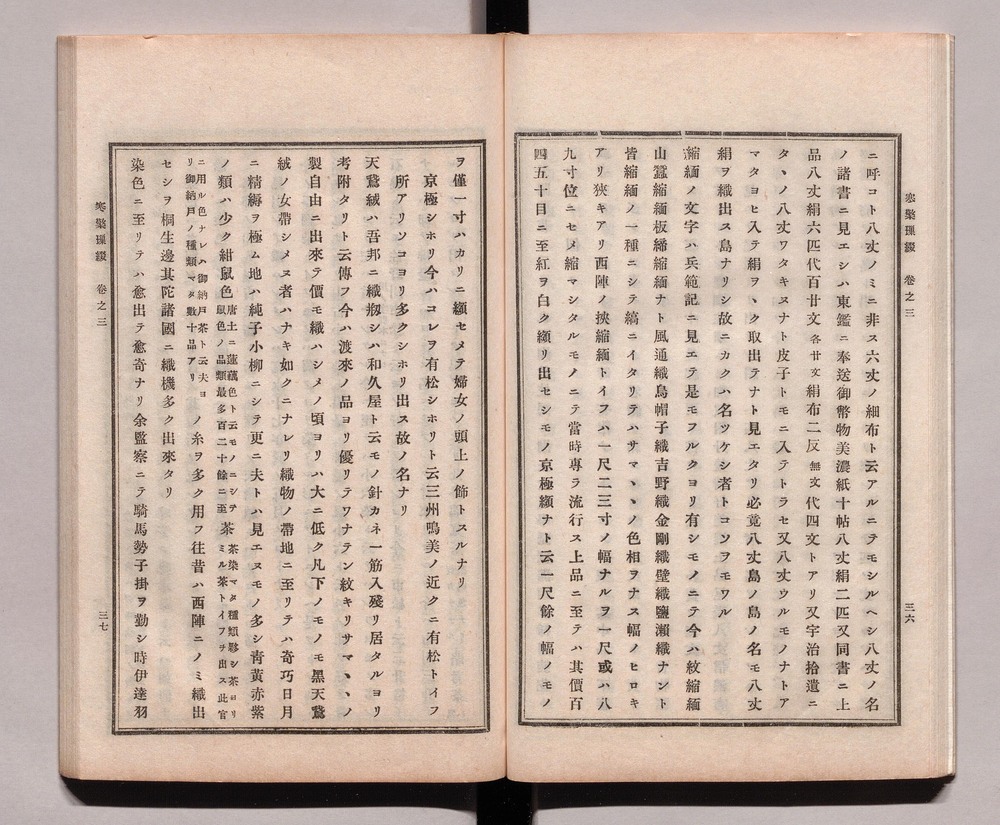 寒檠璅綴 卷之三 三六
ニ呼コト八丈ノミニ非ス六丈ノ細布ト云アルニテモシルヘシ八丈ノ名
ノ諸書ニ見エシハ東鑑ニ奉送御幣物美濃紙十帖八丈絹二匹又同書ニ上
品八丈絹六匹代百廿文各廿文絹布二反無文代四文トアリ又宇治拾遺ニ
タヽノ八丈ワタキヌナト皮子トモニ入テトラセ又八丈ウルモノナトア
マタヨヒ入テ絹ヲヽク取出テナト見エタリ必竟八丈島ノ島ノ名モ八丈
絹ヲ織出ス島ナリシ故ニカクハ名ツケシ者トコソヲモワル
縮緬ノ文字ハ兵範記ニ見エテ是モフルクヨリ有シモノニテ今ハ紋縮緬
山蠶縮緬板縮緬ナト風通織烏帽子織吉野織金剛織壁織鹽瀬織ナント
皆縮緬ノ一種ニシテ縞ニイタリテハサマヽヽノ色相ヲナス幅ノヒロキ
アリ狹キアリ西陣ノ挾縮緬トイフハ一尺二三寸ノ幅ナルヲ一尺或ハ八
九寸位ニセメ縮マシタルモノニテ當時專ラ流行ス上品ニ至テハ其價百
四五十目ニ至紅ヲ白ク纈リ出セシモノ京極纈ナト云一尺餘ノ幅ノモノ
ヲ僅一寸ハカリニ纈セメテ婦女ノ頭上ノ飾トスルナリ
京極シホリ今ハコレヲ有松シホリト云三州鳴美ノ近クニ有松トイフ
所アリソコヨリ多クシホリ出ス故ノ名ナリ
天鵞絨ハ吾邦ニ織剏シハ和久屋ト云モノ針カネ一筋入殘リ居タルヨリ
考附タリト云傳フ今ハ渡來ノ品ヨリ優リテワナテン紋キリサマヽハノ
製自由ニ出來テ價モ織ハシメノ頃ヨリハ大ニ低ク凡下ノモノモ黑天鵞
絨ノ女帶シメヌ者ハナキ如クニナレリ織物ノ帶地ニ至リテハ奇巧日月
ニ精緻ヲ極ム地ハ純子小柳ニシテ更ニ夫トハ見エヌモノ多シ靑黃赤紫
ノ類ハ少ク紺鼠色唐土ニ蓮藕色ト云モノニシテ鼠色ノ品類最多百二十餘ニ至茶茶染マタ種類夥シ茶ヨリミル茶トイフヲ出ス此官
ニ用ル色ナレハ御納戸茶ト云夫ヨリ御納戸ノ種類マタ數十品アリノ糸ヲ多ク用フ往昔ハ西陣ニノミ織出
セシヲ桐生邊其陀諸國ニ織機多ク出來タリ
染色ニ至リテハ愈出テ愈奇ナリ余監察ニテ騎馬勢子掛ヲ勤シ時伊達羽
寒檠璅綴 卷之三 三七